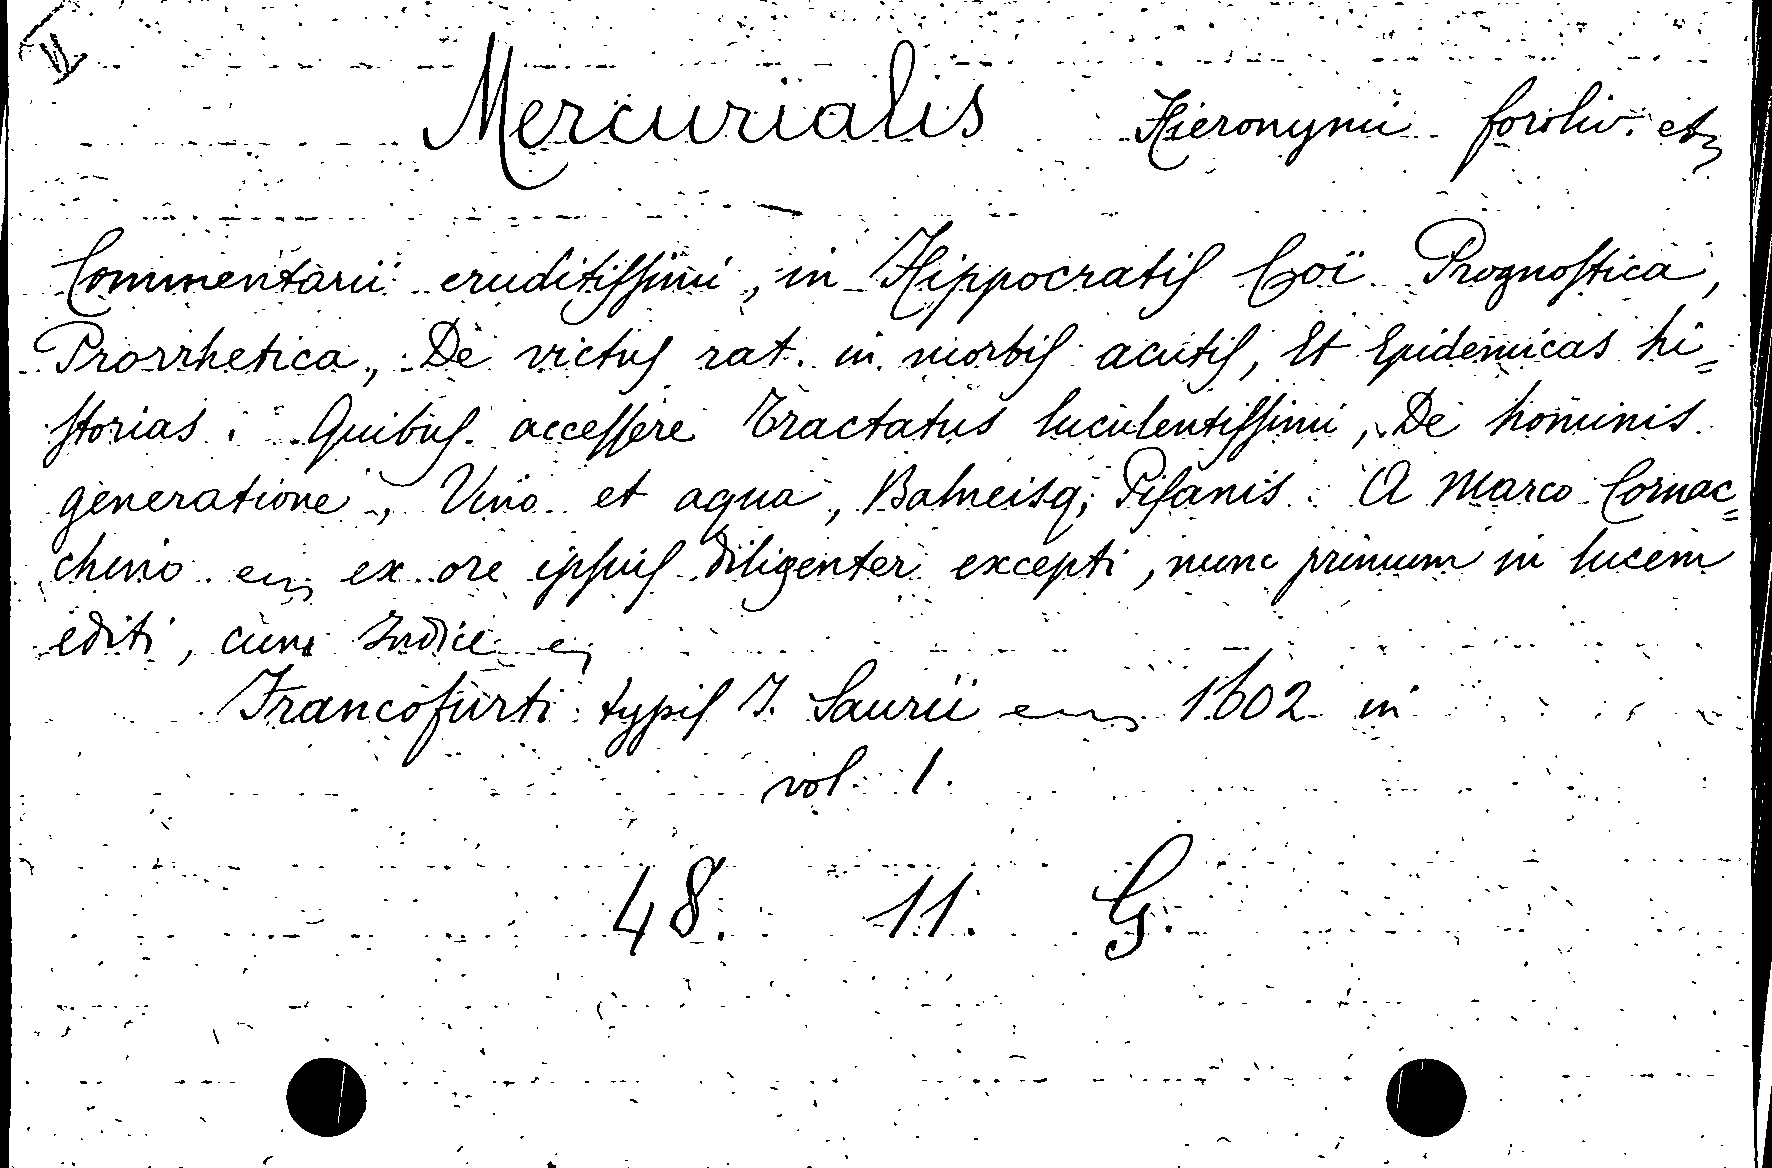 Mercurialis Hieronymi foroliv. etc
Commentarii eruditiſſimi, in Hippocratiſ Coï Prognoſtica,
Prorrhetica, De victuſ rat. in morbiſ acutiſ, Et Epidemicas hi=
ſtorias. Quibuſ acceſſere Tractatus luculentiſſimi, De hominis
generatione, Vino et aqua, Balneisq; Piſanis. A Marco Cornac=
chino etc ex ore ipſiuſ diligenter excepti, nunc primum in lucem
editi, cum Indice etc
Francofurti typiſ I. Saurii etc 1602 in
vol. 1.
48. 11. G.